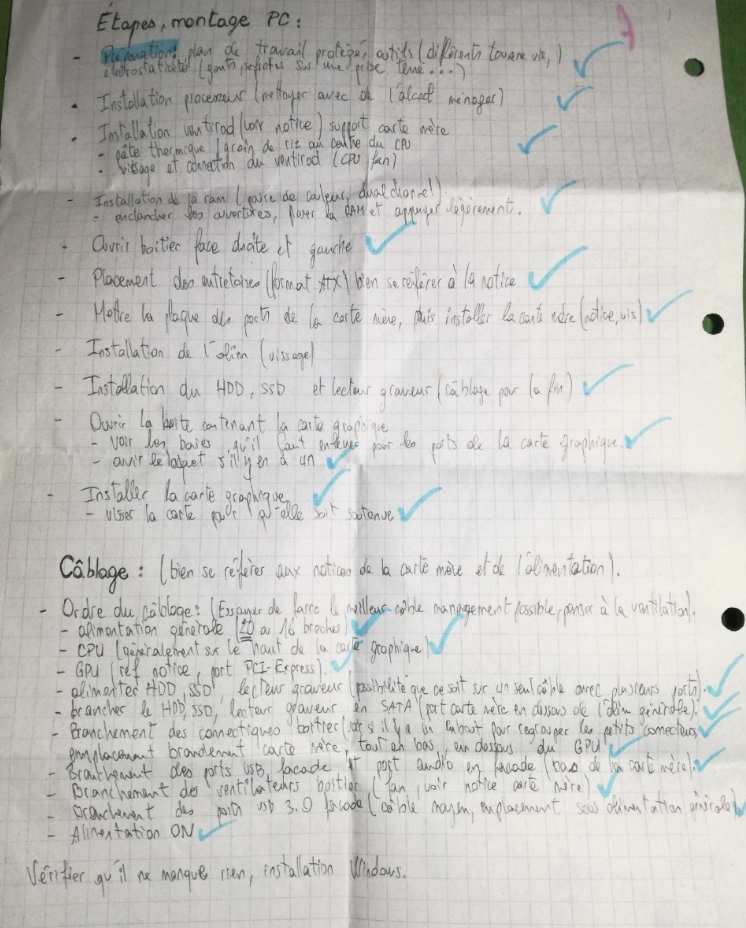 Étapes, montage PC:
- Préparation: plan de travail protégé, outils (différents tournevis,)
électrostaticité (gants, se frotter sur une prise terre...)
- Installation processeur (nettoyer avec de l'alcool ménager)
- Installation ventirad (voir notice) support carte mère
- pâte thermique (grain de riz au centre du CPU
- vissage et connection du ventirad (CPU fan)
- Installation de la ram (paire de couleur, dual channel)
- enclancher les ouvertures, poser la RAM et appuyer légèrement.
- Ouvrir boitier face droite et gauche
- Placement des entretoises (format ATX) bien se référer à la notice
- Mettre la plaque des ports de la carte mère, puis installer la carte mère (notice, vis)
- Installation de l'alim (vissage)
- Installation du HDD, SSD et lecteur graveur (câblage pour la fin)
- Ouvrir la boite contenant la carte graphique
- voir les baies qu'il faut enlever pour les ports de la carte graphique.
- ouvrir le loquet s'il y en a un
- Installer la carte graphique
- visser la carte pour qu'elle soit soutenue
Câblage : (bien se référer aux notices de la carte mère et de l'alimentation).
- Ordre du câblage: (Essayer de faire le meilleur câble management possible, penser à la ventilation).
- alimentation générale (20 ou 16 broches)
- CPU (généralement sur le haut de la carte graphique)
- GPU (ref notice, port PCI-Express).
- alimenter HDD, SSD, lecteur graveur (possibilité que ce soit sur un seul câble avec plusieurs ports).
- brancher le HDD, SSD, lecteur graveur en SATA (port carte mère en dessous de l'alim générale).
- Branchement des connectiques boitier (voir s'il y a un embout pour regrouper les petits connecteurs,
emplacement branchement carte mère, tout en bas, en dessous du GPU
- Branchement des ports USB façade et port audio en façade (bas de la carte mère).
- Branchement des ventilateurs boitier (fan, voir notice carte mère)
- Branchement des ports USB 3.0 façade (câble moyen, emplacement sous alimentation générale)
- Alimentation ON
Vérifier qu'il ne manque rien, installation Windows.